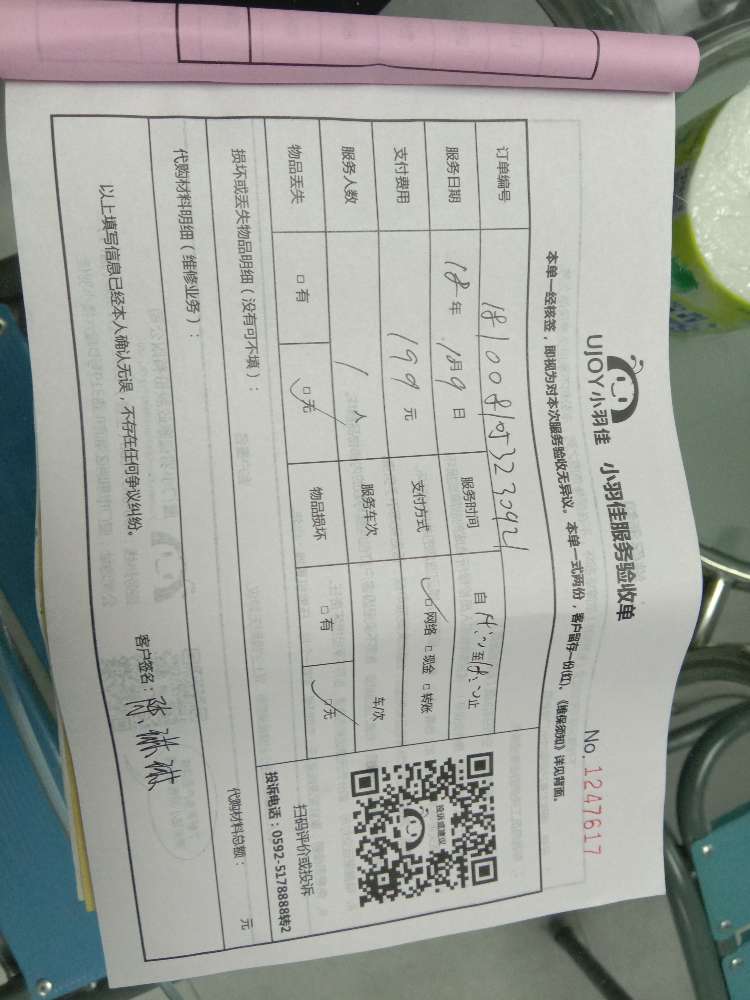 UJOY小羽佳 小羽佳服务验收单
No. 1247617
本单一经核签，即视为对本次服务验收无异议。本单一式两份，客户留存一份(红)，《维保须知》详见背面。
订单编号
服务日期 18年 月9日 服务时间 自 至 止
支付费用 199元 支付方式 ☑网络 □现金 □转账
服务人数 1人 服务车次 车/次
物品丢失 □有 ☑无 物品损坏 □有 ☑无
投诉或建议
扫码评价或投诉
投诉电话：0592-5178888转2
损坏或丢失物品明细（没有可不填）：
代购材料明细（维修业务）： 代购材料总额： 元
以上填写信息已经本人确认无误，不存在任何争议纠纷。 客户签名：